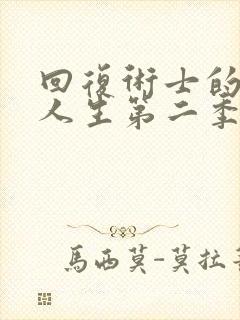 回復術士的
人生第二季
馬西莫-莫拉